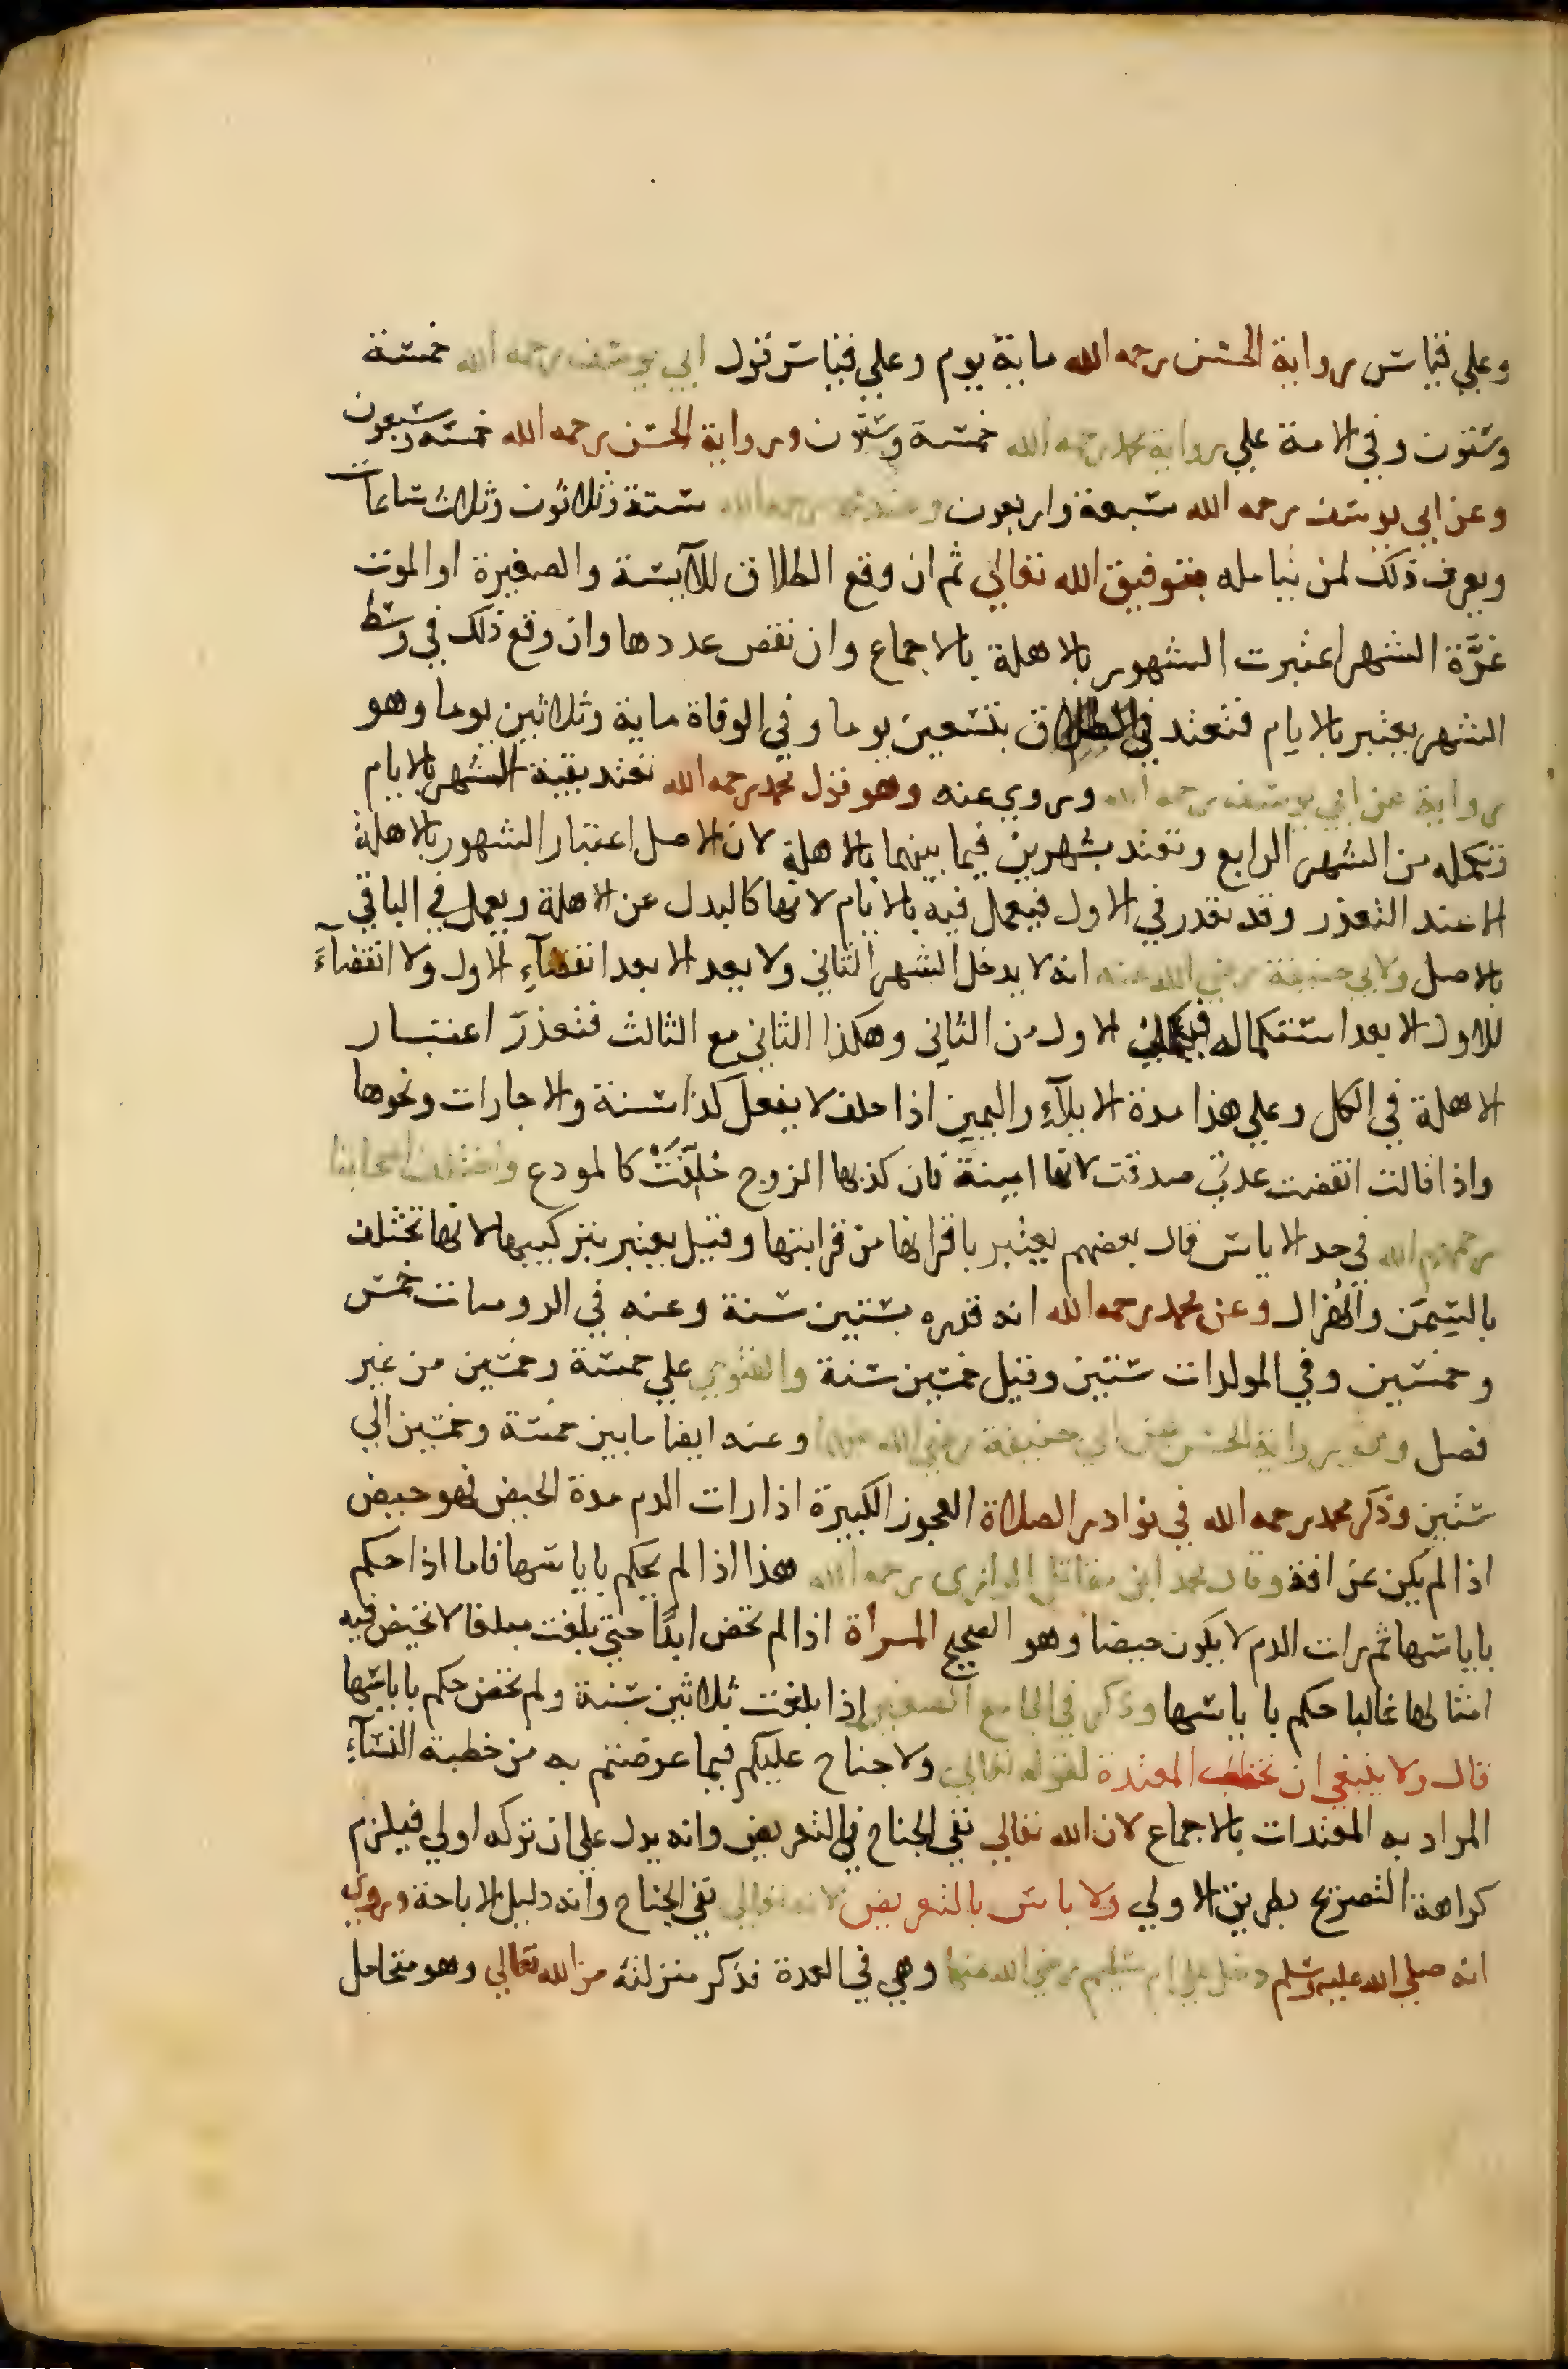 وعلي قياس رواية الحسن رحمه الله ماية يوم وعلي قياس قول ابي يوسف رحمه الله خمسة
وستون وفي الامة علي رواية محمد رحمه الله خمسة وستون ورواية الحسن رحمه الله خمسة وسبعون
وعن ابي يوسف رحمه الله سبعة واربعون وعند محمد رحمه الله ستة وثلاثون وثلاث ساعات
ويعرف ذلك لمن يتامله بتوفيق الله تعالي ثم ان وقع الطلاق للآيسة والصغيرة او الموت
غرَّة الشهر اعتبرت الشهور بالاهلة بالاجماع وان نقص عددها وان وقع ذلك في وسط
الشهر يعتبر بالايام فتعتد في الطلاق بتسعين يوما وفي الوفاة ماية وثلاثين يوما وهو
رواية عن ابي يوسف رحمه الله وروي عنه وهو قول محمد رحمه الله تعتد بقية الشهر بالايام
تكمله من الشهر الرابع وتعتد بشهرين فيما بينهما بالاهلة لان الاصل اعتبار الشهور بالاهلة
الا عند التعذر وقد تعذر في الاول فيعمل فيه بالايام لانها كالبدل عن الاهلة ويعمل في الباقي
بالاصل ولابي حنيفة رضي الله عنه انه لا يدخل الشهر الثاني ولا يعد الا بعد انقضآءِ الاول ولا انقضآءَ
للاول الا بعد استكماله فيكمل الاول من الثاني وهكذا الثاني مع الثالث فتعذرَ اعتبار
الاهلة في الكل وعلي هذا مدة الايلآءِ واليمين اذا حلف لا يفعل كذا سنة والاجارات ونحوها
واذا قالت انقضت عدتي صدقت لانها امينة فان كذبها الزوج حُلِّفَتْ كالمودع واختلف اصحابنا
رحمهم الله في حد الاياس قال بعضهم يعتبر باقرانها من قرابتها وقيل يعتبر بتركيبها لانها تختلف
بالسِّمَن والهُزال وعن محمد رحمه الله انه قدره بستين سنة وعنه في الروميات خمس
وخمسين وفي المولدات ستين وقيل خمسين سنة والفتوي علي خمسة وخمسين من غير
فصل وهو رواية الحسن عن ابي حنيفة رضي الله عنهما وعنه ايضا ما بين خمسة وخمسين الي
ستين وذكر محمد رحمه الله في نوادر الصلاة العجوز الكبيرة اذا رات الدم مدة الحيض فهو حيض
اذا لم يكن عن افة وقال محمد ابن مقاتل الرازي رحمه الله هذا اذا لم يحكم باياسها فاما اذا حكم
باياسها ثم رات الدم لا يكون حيضا وهو الصحيح المراة اذا لم تحض ابدًا حتي بلغت مبلغا لا تحيض فيه
امثالها غالبا حكم باياسها وذكر في الجامع الصغير اذا بلغت ثلاثين سنة ولم تحض حكم باياسها
قال ولا ينبغي ان تخطب المعتدة لقوله تعالي ولا جناح عليكم فيما عرضتم به من خطبة النسآءِ
المراد به المعتدات بالاجماع لان الله تعالي نفي الجناح في التعريض وانه يدل علي ان تركه اولي فيلزم
كراهة التصريح بطريق الاولي ولا باس بالتعريض لانه تعالي نفي الجناح وانه دليل الاباحة وروي
انه صلي الله عليه وسلم دخل علي ام سليم رضي الله عنها وهي في العدة فذكر منزلته من الله تعالي وهو متحامل